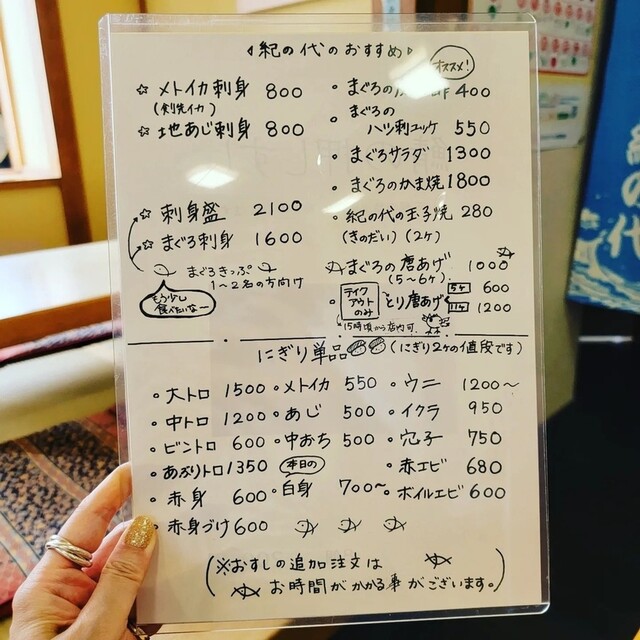 紀の代のおすすめ
オススメ!
☆ メトイカ刺身 800
(剣先イカ)
☆ 地あじ刺身 800
☆ 刺身盛 2100
☆ まぐろ刺身 1600
まぐろきっぷ
1〜2名の方向け
もう少し
食べたいなー
・まぐろの 400
・まぐろの
ハツ刺ユッケ 550
・まぐろサラダ 1300
・まぐろのかま焼 1800
・紀の代の玉子焼 280
(きのだい) (2ヶ)
まぐろの唐あげ 1000
(5〜6ヶ)
・テイクアウトのみ とり唐あげ 5ヶ 600
11ヶ 1200
15時頃から店内可
にぎり単品 (にぎり2ヶの値段です)
・大トロ 1500
・中トロ 1200
・ビントロ 600
・あぶりトロ 1350
・赤身 600
・赤身づけ 600
・メトイカ 550
・あじ 500
・中おち 500
本日の
・白身 700〜
・ウニ 1200〜
・イクラ 950
・穴子 750
・赤エビ 680
・ボイルエビ 600
(※おすしの追加注文は
お時間がかかる事がございます。)
の代